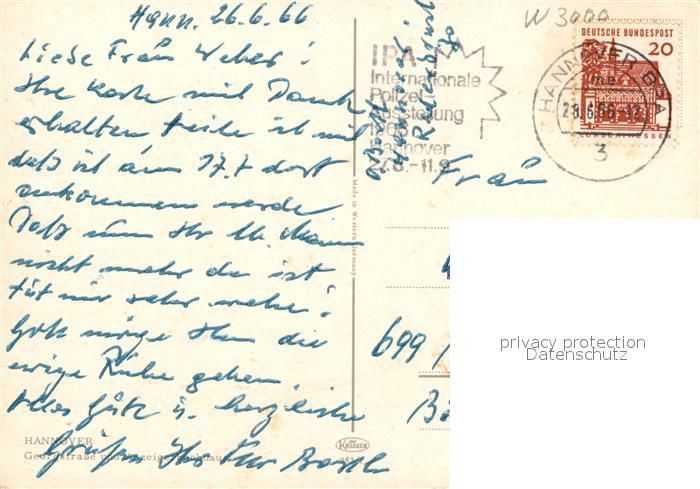 Hann. 26.6.66
Liebe Frau Weber!
Ihre Karte mit Dank
erhalten teile ich mit
daß ich am 17.7 dort
ankommen werde
Daß nun Ihr lb. Mann
nicht mehr da ist
tut mir sehr wehe!
Gott möge Ihm die
ewige Ruhe geben.
Alles Gute u. herzliche
Grüßen Ihr
HANNOVER
Georgstraße und Anzeigerhochhaus
KRÜGER
Made in Western Germany
IPA
Internationale
Polizei-
Ausstellung
1966
Hannover
27.8.-11.9.
W 3000
DEUTSCHE BUNDESPOST
20
HANNOVER
28.6.66
3
Frau
699
privacy protection
Datenschutz